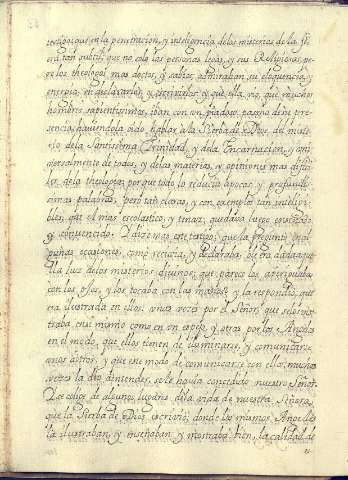 testigo, que en la penetracion, y inteligencia de los misterios de la fee
era tan subtil, que no solo las personas legas, y sus Religiosas, pe
ro los theologos mas doctos, y sabios, admiraban su eloquencia, y
energia, en declararlos, y escrivirlos, y que ella vio, que muchos
hombres sapientissimos, iban con un piadoso pasmo de su pre
sencia, haviendola oido hablar a la Sierba de Dios del miste
rio de la Santissima Trinidad, y de la Encarnacion, y uni
versalmente de todos, y de las materias, y opiniones mas dificu
les de la theologia; porque todo lo reducia a pocas, y profundis
simas palabras, pero tan claras, y con exemplos tan inteligi
bles, que el mas escolastico, y tenaz, quedava luego enseñado,
y convencido. Y dize mas este testigo, que la pregunto en al
gunas ocasiones, como recivia, y declaraba, o le era dada aque
lla luz de los misterios divinos; que parece los averiguaba
con los ojos, y los tocaba con las manos, y la respondio, que
era ilustrada en ellos, unas vezes por el Señor, que se los mos
traba en si mismo como en un espejo, y otras por los Angeles
en el modo, que ellos tienen de iluminarse, y comunicarse
unos a otros, y que ese modo de comunicarse con ella, muchas
vezes la dio a entender, se le havia concedido nuestro Señor.
Y se colige de algunos lugares de la vida de nuestra Señora,
que la Sierba de Dios escrivió; donde los mismos Angeles
la ilustraban, y enseñaban, y mostraba bien, la calidad de